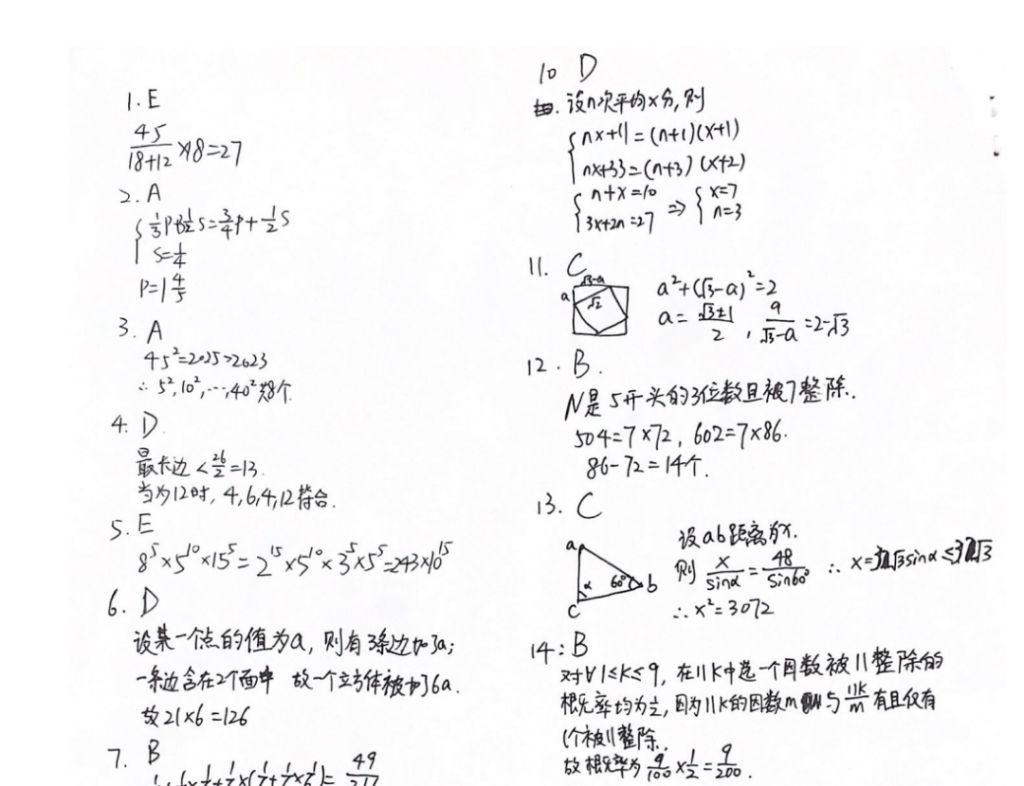 1. E
45/(18+12) ×18=27
2. A
{ 1/3 P+ 1/2 S= 3/4 P+ 1/2 S
S= 1/4
P=1 4/5
3. A
45²=2025>2023
∴ 5², 10², …, 40² 共8个.
4. D.
最长边 < 26/2 =13.
当为12时, 4,6,4,12符合.
5. E
8⁵×5¹⁰×15⁵=2¹⁵×5¹⁰×3⁵×5⁵=243×10¹⁵
6. D
设某一个点的值为a, 则有3条边加3a;
一条边含在2个面中 故一个立方体被加了6a.
故21×6=126
7. B
10 D
设n次平均x分, 则
{ nx+11=(n+1)(x+1)
nx+33=(n+3)(x+2)
{ n+x=10
3x+2n=27 ⇒ { x=7
n=3
11. C
√3-a
a √2
a²+(√3-a)²=2
a= (√3±1)/2 , a/(√3-a) =2-√3
12. B.
N是5开头的3位数且被7整除.
504=7×72, 602=7×86.
86-72=14个.
13. C
a α 60° b c
设ab距离为x.
则 x/sinα = 48/sin60° ∴ x=32√3sinα≤32√3
∴ x²=3072
14: B
对∀1≤K≤9, 在11K中选一个因数被11整除的
概率均为½, 因为11K的因数m与 11K/m 有且仅有
1个被11整除.
故概率为 9/100 × 1/2 = 9/200 .